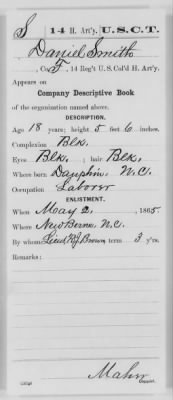 S | 14 H. Art'y. | U.S.C.T.
Daniel Smith
, Co. F, 14 Reg't U.S. Col'd H. Art'y.
Appears on
Company Descriptive Book
of the organization named above.
DESCRIPTION.
Age 18 years; height 5 feet 6 inches.
Complexion Blk.
Eyes Blk.; hair Blk.
Where born Dauphin, N.C.
Occupation Laborer
ENLISTMENT.
When May 2, 1865
Where New Berne, N.C.
By whom Lieut. Brown; term 3 y'rs.
Remarks:
Maher
Copyist.